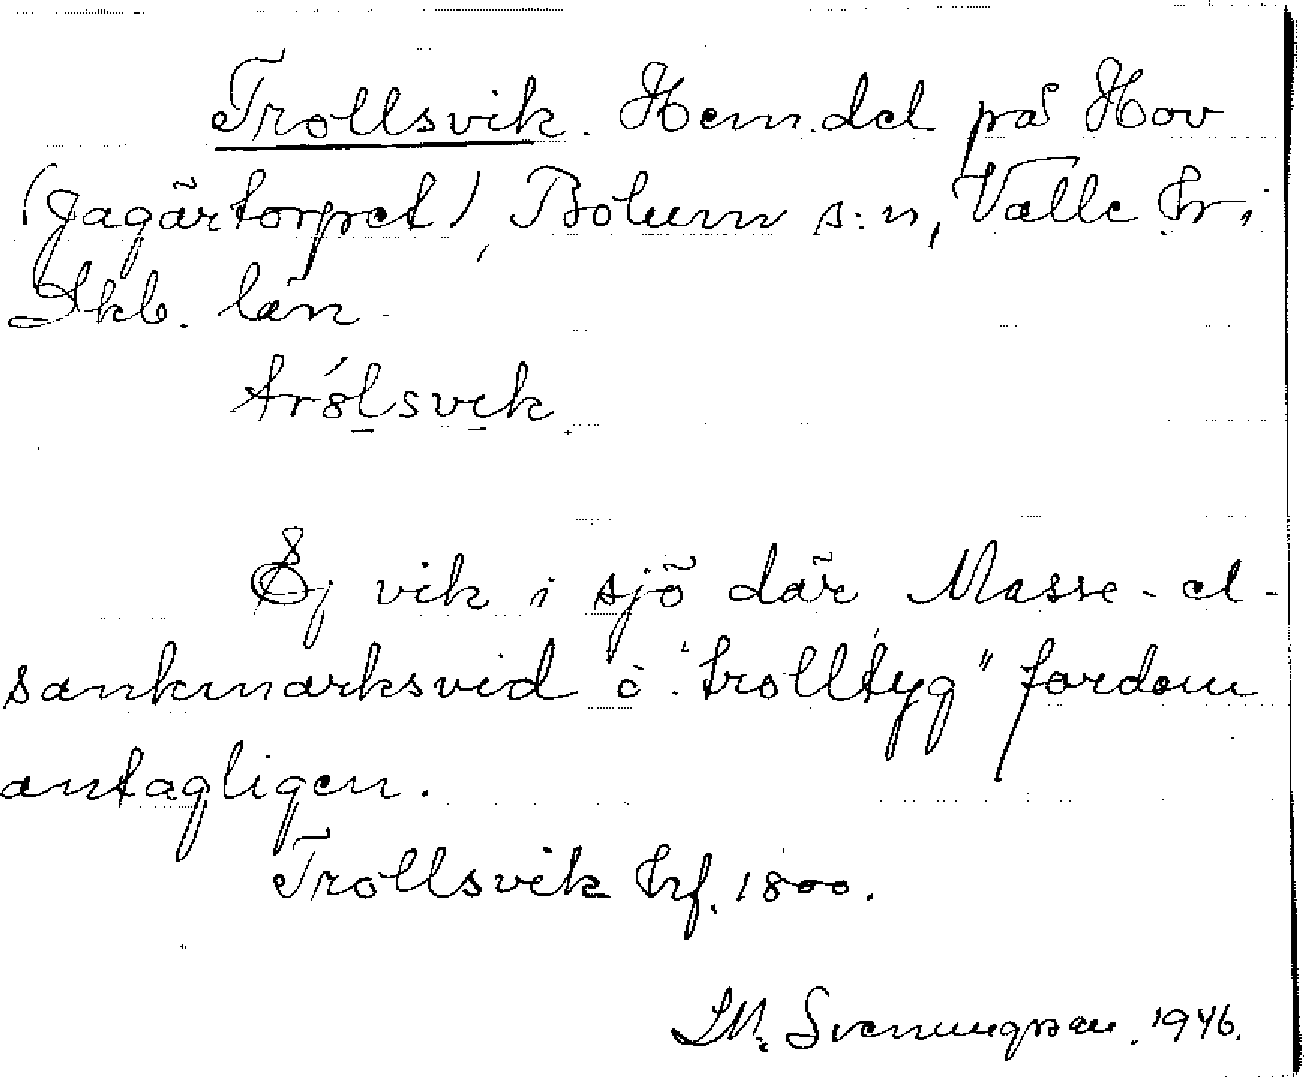 Trollsvik. Hem.del på Hov
(Jagärtorpet), Bolum s:n, Valle hr i
Skb. län
tról̠svi̠k
Ej vik i sjö där Mosse- el-
sankmarksvid o. "trolltyg" fordom
antagligen.
Trollsvik hrf. 1800.
Sveningsson. 1946.